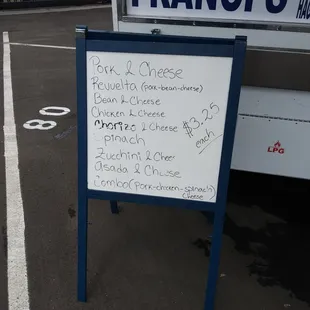 Pork & Cheese
Revuelta (pork-bean-cheese)
Bean & Cheese
Chicken & Cheese
Chorizo & Cheese
pinach
Zucchini & Chee
Asada & Cheese
Combo (pork-chicken-spinach)
cheese
$3.25
each
LPG
08